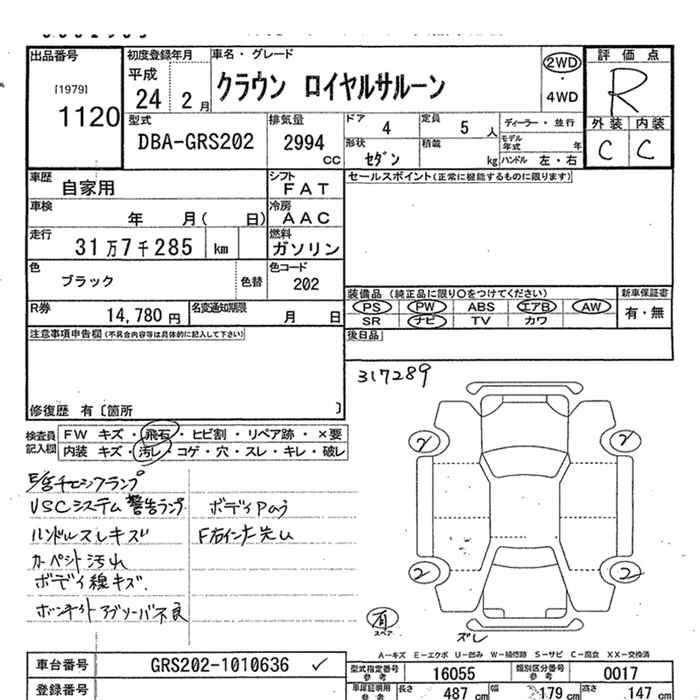 出品番号
[1979]
1120
初度登録年月
平成
24 2月
車名・グレード
クラウン ロイヤルサルーン
2WD
・
4WD
評価点
R
外装 内装
C C
型式
DBA-GRS202
排気量
2994
CC
ドア
4
定員
5 人
ディーラー・並行
モデル年式 年
形状
セダン
積載
kg
ハンドル 左・右
車歴
自家用
シフト
FAT
セールスポイント(正常に機能するものに限ります)
車検
年 月( 日)
冷房
AAC
走行
31万7千285 km
燃料
ガソリン
色
ブラック
色替
色コード
202
装備品 (純正品に限り○をつけてください)
PS PW ABS エアB AW
SR ナビ TV カワ
新車保証書
有・無
R券
14,780 円
名変通知期限
月 日
後日品
注意事項申告欄(不具合内容等は具体的に記入して下さい)
317289
修復歴 有〔箇所 〕
検査員
記入欄
FW キズ・飛石・ヒビ割・リペア跡・×要
内装 キズ・汚レ・コゲ・穴・スレ・キレ・破レ
VSCシステム警告ランプ
ハンドルスレキズ
カーペット汚れ
ボデイ線キズ.
2
2
2
2
有
スペア
ズレ
A-キズ E-エクボ U-凹み W-補修跡 S-サビ C-腐食 XX-交換済
車台番号
GRS202-1010636 ✓
登録番号
型式指定番号
参考
16055
類別区分番号
参考
0017
車庫証明用
参考
長さ
487 cm
幅
179 cm
高さ
147 cm